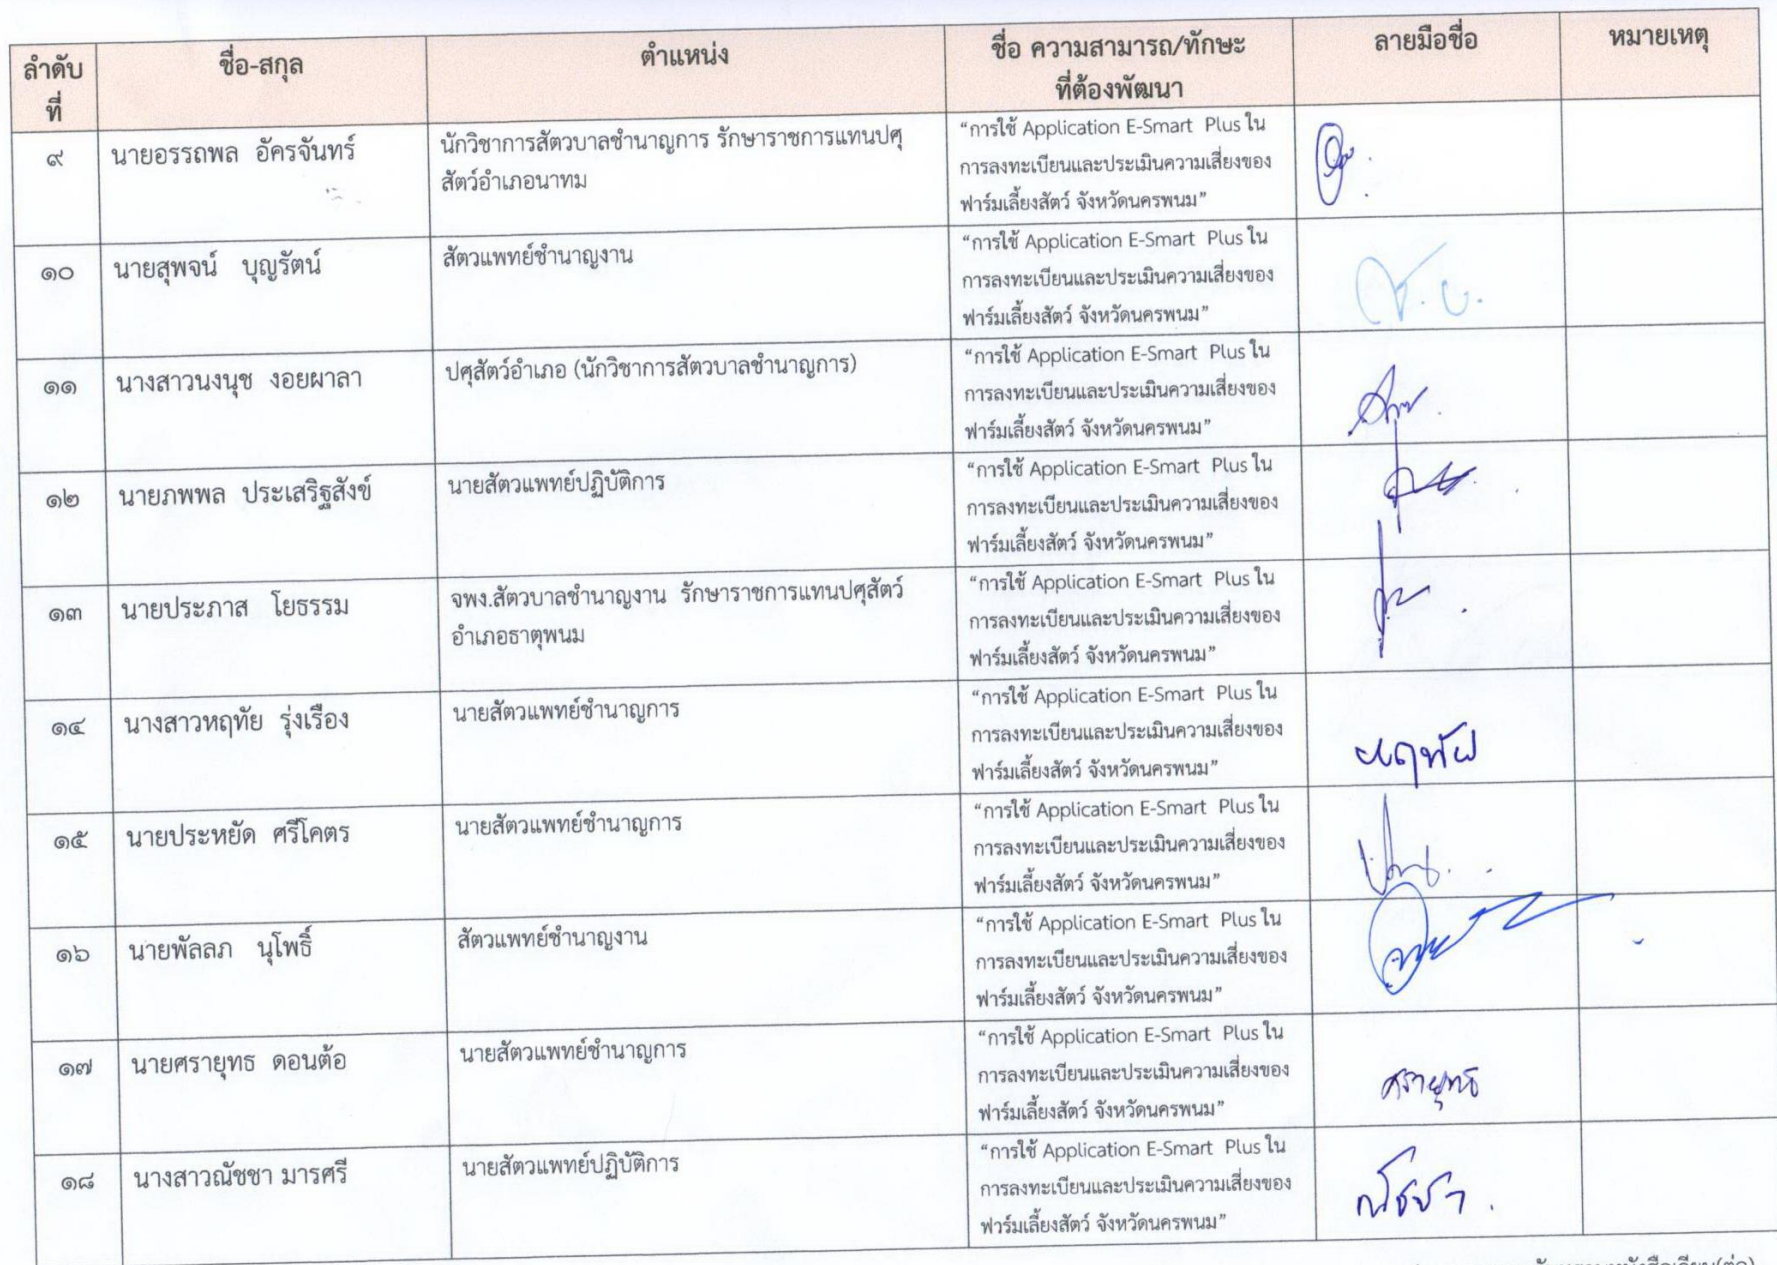 ลำดับ ชื่อ-สกุล ตำแหน่ง ชื่อ ความสามารถ/ทักษะ ลายมือชื่อ หมายเหตุ
ที่ ที่ต้องพัฒนา
๙ นายอรรถพล อัครจันทร์ นักวิชาการสัตวบาลชำนาญการ รักษาราชการแทนปศุ “การใช้ Application E-Smart Plus ใน
สัตว์อำเภอนาทม การลงทะเบียนและประเมินความเสี่ยงของ
ฟาร์มเลี้ยงสัตว์ จังหวัดนครพนม”
๑๐ นายสุพจน์ บุญรัตน์ สัตวแพทย์ชำนาญงาน “การใช้ Application E-Smart Plus ใน
การลงทะเบียนและประเมินความเสี่ยงของ
ฟาร์มเลี้ยงสัตว์ จังหวัดนครพนม”
๑๑ นางสาวนงนุช งอยผาลา ปศุสัตว์อำเภอ (นักวิชาการสัตวบาลชำนาญการ) “การใช้ Application E-Smart Plus ใน
การลงทะเบียนและประเมินความเสี่ยงของ
ฟาร์มเลี้ยงสัตว์ จังหวัดนครพนม”
๑๒ นายภพพล ประเสริฐสังข์ นายสัตวแพทย์ปฏิบัติการ “การใช้ Application E-Smart Plus ใน
การลงทะเบียนและประเมินความเสี่ยงของ
ฟาร์มเลี้ยงสัตว์ จังหวัดนครพนม”
๑๓ นายประภาส โยธรรม จพง.สัตวบาลชำนาญงาน รักษาราชการแทนปศุสัตว์ “การใช้ Application E-Smart Plus ใน
อำเภอธาตุพนม การลงทะเบียนและประเมินความเสี่ยงของ
ฟาร์มเลี้ยงสัตว์ จังหวัดนครพนม”
๑๔ นางสาวหฤทัย รุ่งเรือง นายสัตวแพทย์ชำนาญการ “การใช้ Application E-Smart Plus ใน
การลงทะเบียนและประเมินความเสี่ยงของ
ฟาร์มเลี้ยงสัตว์ จังหวัดนครพนม” หฤทัย
๑๕ นายประหยัด ศรีโคตร นายสัตวแพทย์ชำนาญการ “การใช้ Application E-Smart Plus ใน
การลงทะเบียนและประเมินความเสี่ยงของ
ฟาร์มเลี้ยงสัตว์ จังหวัดนครพนม”
๑๖ นายพัลลภ นุโพธิ์ สัตวแพทย์ชำนาญงาน “การใช้ Application E-Smart Plus ใน
การลงทะเบียนและประเมินความเสี่ยงของ
ฟาร์มเลี้ยงสัตว์ จังหวัดนครพนม”
๑๗ นายศรายุทธ ดอนต้อ นายสัตวแพทย์ชำนาญการ “การใช้ Application E-Smart Plus ใน
การลงทะเบียนและประเมินความเสี่ยงของ ศรายุทธ
ฟาร์มเลี้ยงสัตว์ จังหวัดนครพนม”
๑๘ นางสาวณัชชา มารศรี นายสัตวแพทย์ปฏิบัติการ “การใช้ Application E-Smart Plus ใน
การลงทะเบียนและประเมินความเสี่ยงของ ณัชชา
ฟาร์มเลี้ยงสัตว์ จังหวัดนครพนม”